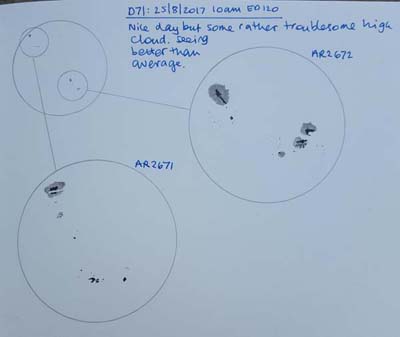 D71: 25/8/2017 10am ED120
Nice day but some rather troublesome high
cloud. Seeing
better than
average.
AR2672
AR2671